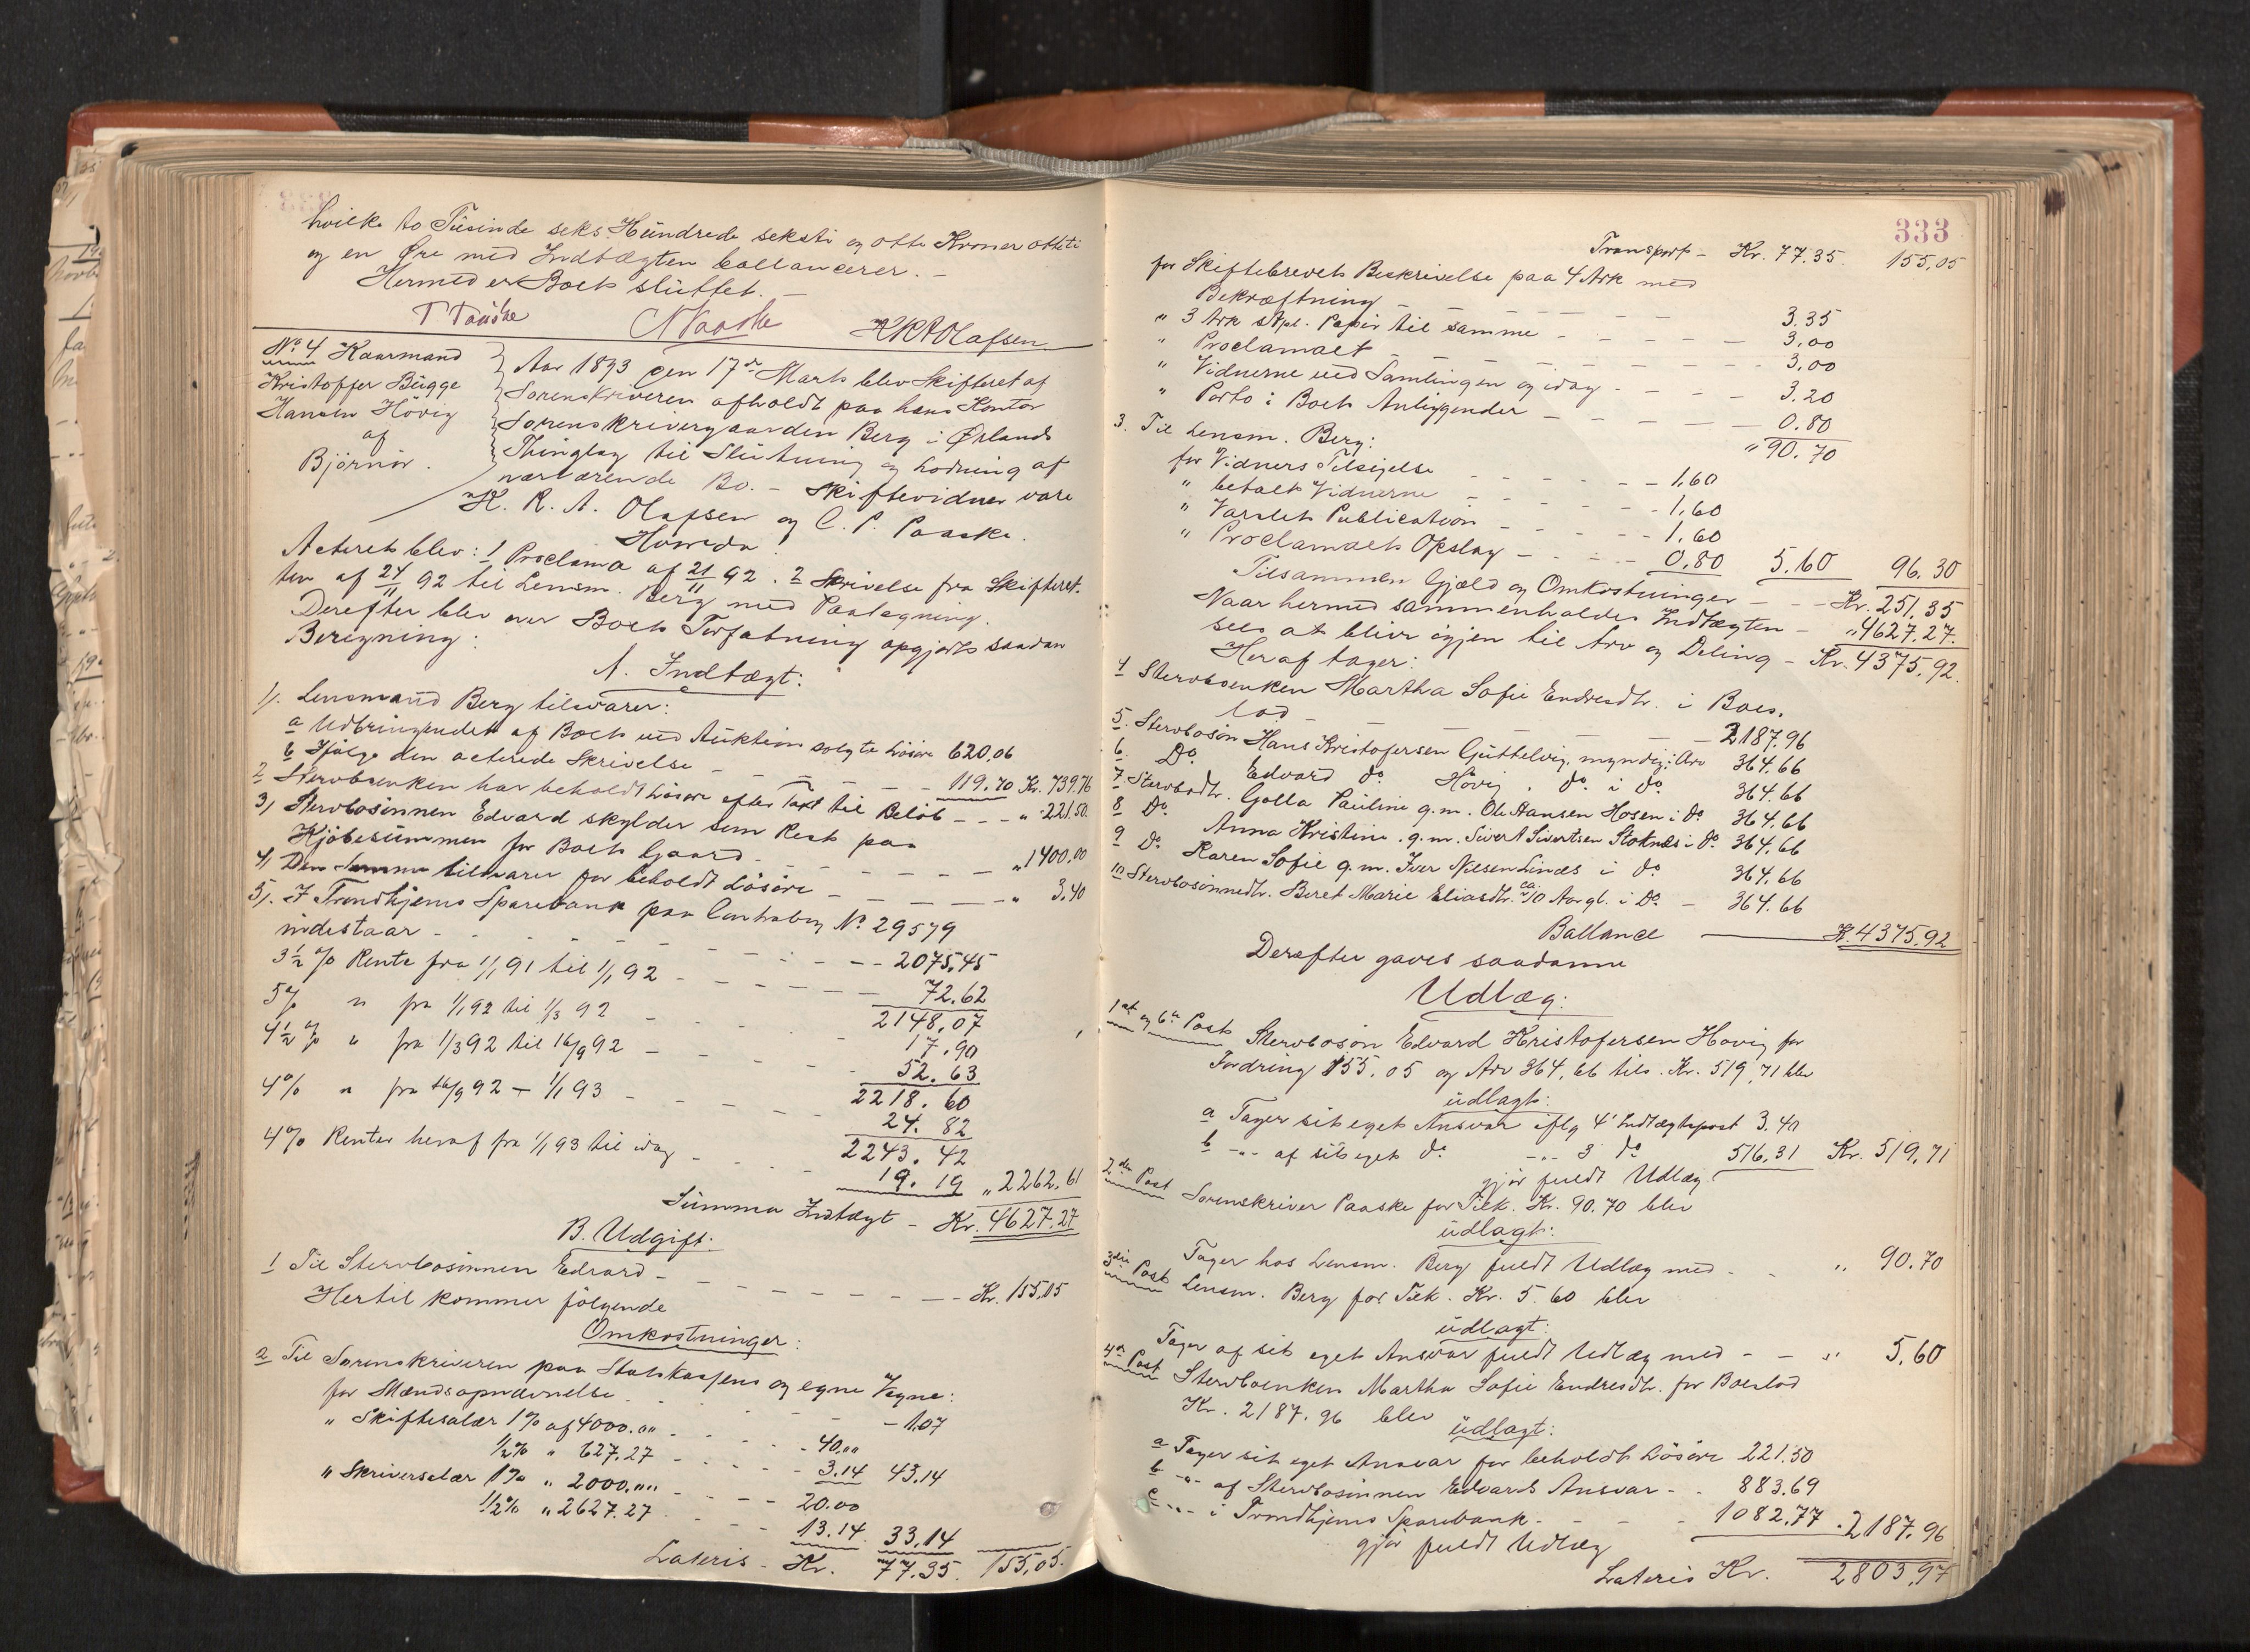 hvilke to Tusinde seks Hundrede seksti og otte Kroner otteti
og en Øre med Indtægten ballancerer. –
Hermed er Boets sluttet. –
T Paaske N Paaske H R A Olafsen
No 4 Kaarmand
Kristoffer Bügge
Hansen Hövig
af
Björnör.
Aar 1893 den 17de Marts blev Skifteret af
Sorenskriveren afholdt paa hans Kontor
Sorenskrivergaarden Berg i Ørlands
Thinglag til Slutning og Lodning af
nærværende Bo. – Skiftevidner vare
H. R. A. Olafsen og C. P. Paaske.
Hvorda
Acteret blev: 1 Proclama af 21/11 92. 2 Skrivelse fra Skifteret.
ten af 24/11 92 til Lensm. Berg med Paategning.
Derefter blev over Boets Forfatning opgjort saadan
Beregning:
A. Indtægt:
1). Lensmand Berg tilsvarer:
a Udbringendet af Boets ved Auktion solgte Lösöre 620.06
b Ifölge den acterede Skrivelse – – – 119.70 Kr. 739.76
2 Stervboenken har beholdt Lösöre efter Taxt til Belöb – – – " 221.50.
3) Stervbosönnen Edvard skylder som Rest paa
Kjöbesummen for Boets Gaard – – – " 1400.00
4) Den samme tilsvarer for beholdt Lösöre – – – " 3.40
5). I Trondhjems Sparebank paa Contrabog No 29579
indestaar – – – 2075.45
3½ % Rente fra 1/1 91 til 1/1 92 – – – 72.62
2148.07
5% " fra 1/1 92 til 1/3 92 – – 17.90
4½ % " fra 1/3 92 til 16/9 92 – – 52.63
2218.60
4% " fra 16/9 92 – 1/1 93 – – – 24.82
2243.42
4% Renter heraf fra 1/1 93 til idag – – 19.19 " 2262.61
Summa Indtægt – Kr. 4627.27
B. Udgift:
1 Til Stervbosönnen Edvard – – – Kr. 155.05
Hertil kommer fölgende
Omkostninger:
2 Til Sorenskriveren paa Statskassens og egne Vegne:
for Mændsopnævnelse – – 1.07
" Skiftesalær 1% af 4000.00 – – 40.00
½% " 627.27 – – 3.14 43.14
" Skriversalær 1% " 2000.00 – – 20.00
½% " 2627.27 – – 13.14 33.14
Lateris – Kr. 77.35. 155.05.
333
Transport – Kr. 77.35. 155.05
for Skiftebrevets Beskrivelse paa 4 Ark med
Bekræftning – – – 3.35
" 3 Ark stpl. Papir til samme – – – 3.00
" Proclamaet – – – 3.00
" Vidnerne ved Samlingen og idag – – – 3.20
" Porto i Boets Anliggender – – – 0.80
" 90.70
3. Til Lensm. Berg:
for Vidners Tilsigelse – – – 1.60
" betalt Vidnerne – – – 1.60
" Varslets Publication – – – 1.60
" Proclamaets Opslag – – – 0.80 5.60 96.30
Tilsammen Gjæld og Omkostninger – – – Kr. 251.35
Naar hermed sammenholdes Indtægten – " 4627.27.
sees at blive igjen til Arv og Deling – Kr. 4375.92.
Heraf tager:
4 Stervboenken Martha Sofie Endresdtr. i Boes.
lod – – – 2187.96
5. Stervbosön Hans Kristofersen Guttelvig, myndig i Arv 364.66
6 Do Edvard do Hövig, do i do 364.66
7 Stervbodtr. Golla Pauline g.m. Ole Hansen Hosen i do 364.66
8 Do Anna Kristine g.m. Sivert Sivertsen Stoknes i do 364.66
9 do Karen Sofie g.m. Iver Nilsen Lines i do 364.66
10 Stervbosönnedtr. Beret Marie Eliasdtr. ca. 10 Aar gl. i Do – 364.66
Ballance – Kr. 4375.92
Derefter gaves saadanne
Udlæg:
1ste og 6te Post Stervbosön Edvard Kristofersen Hovig for
Fordring 155.05 og Arv 364.66 tils. Kr. 519.71 blev
udlagt:
a Tager sit eget Ansvar iflg 4' Indtægtspost 3.40
b -"- af sit eget do -"- 3 do 516.31 Kr. 519.71
gjör fuldt Udlæg.
2den Post Sorenskriver Paaske for Tilk. Kr. 90.70 blev
udlagt:
Tager hos Lensm. Berg fuldt Udlæg med – – " 90.70
3die Post Lensm. Berg for Tilk. Kr. 5.60 blev
udlagt:
Tager af sit eget Ansvar fuldt Udlæg med – – " 5.60
4de Post Stervboenken Martha Sofie Endresdtr. for Boeslod
Kr. 2187.96 blev
udlagt:
a Tager sit eget Ansvar for beholdt Lösöre 221.50
b -"- af Stervbosönnen Edvards Ansvar – – 883.69
c -"- i Trondhjems Sparebank – – – 1082.77 . 2187.96
gjör fuldt Udlæg
Lateris Kr. 2803.97